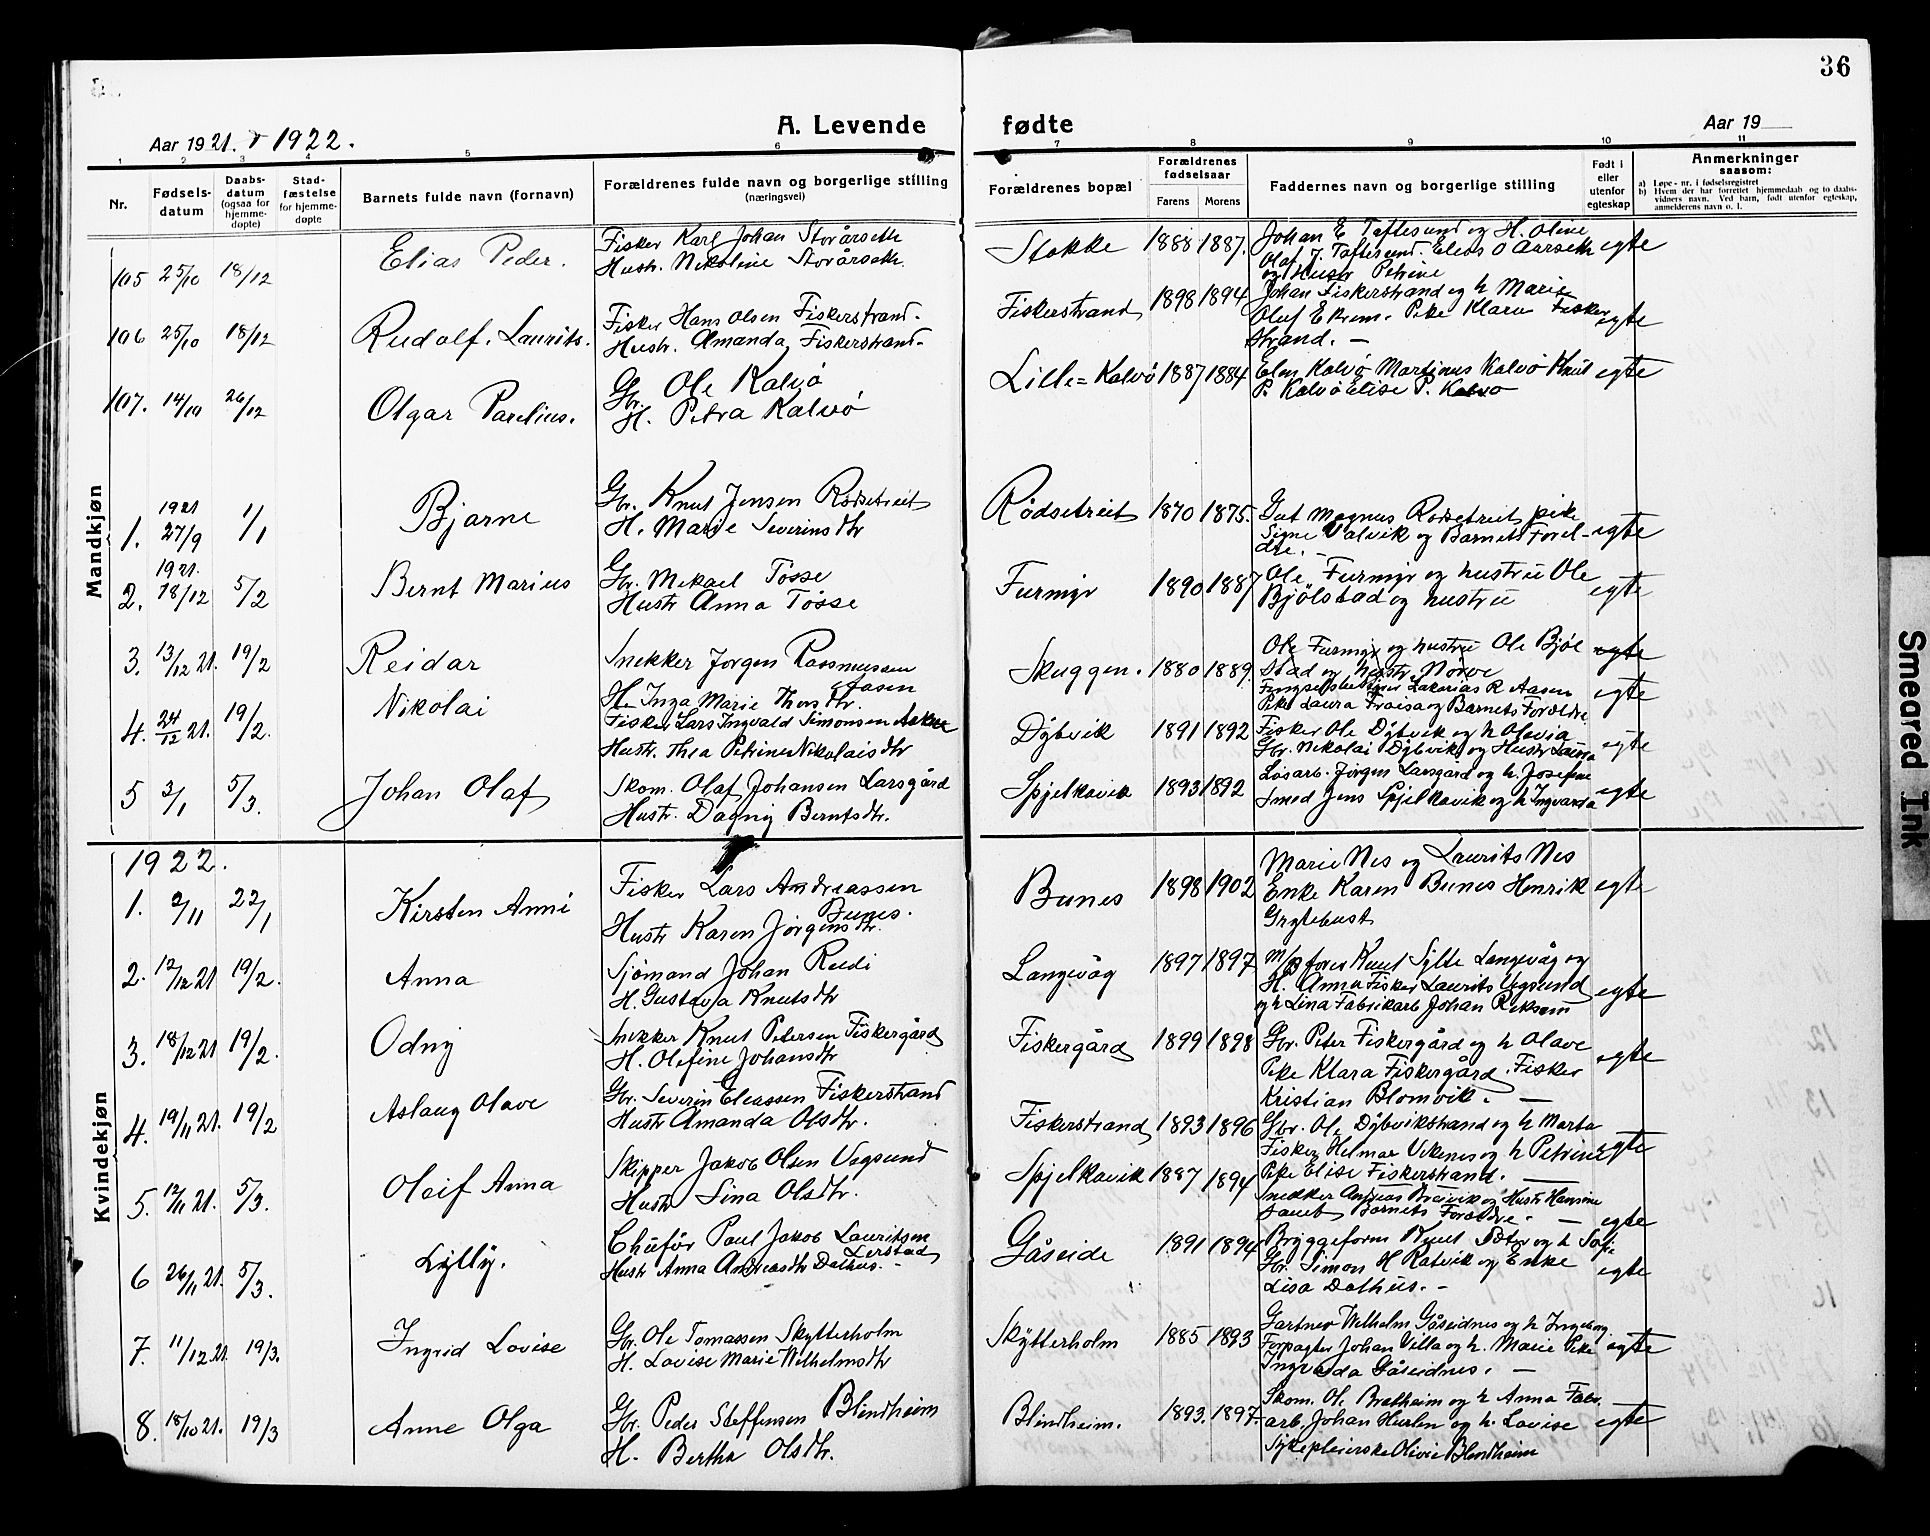 36
Aar 1921. & 1922.
A. Levende fødte
Aar 19
1 2 3 4 5 6 7 8 9 10 11
Nr.
Fødsels-
datum
Daabs-
datum
(ogsaa for
hjemme-
døpte)
Stad-
fæstelse
for hjemme-
døpte
Barnets fulde navn (fornavn)
Forældrenes fulde navn og borgerlige stilling
(næringsvei)
Forældrenes bopæl
Forældrenes
fødselsaar
Farens Morens
Faddernes navn og borgerlige stilling
Født i
eller
utenfor
egteskap
Anmerkninger
saasom:
a) Løpe-nr. i fødselsregistret
b) Hvem der har forrettet hjemmedaab og to daabs-
vidners navn. Ved barn, født utenfor egteskap,
anmelderens navn o. l.
Mandkjøn
105 25/10 18/12 Elias Peder.
Fisker Karl Johan Storårseth
Hustr. Nikoline Storårseth.
Stokke 1888 1887.
Johan E Taftesund og H. Oline
Olaf J. Taftesund. Elias O Aarseth
og Hustr Petrine
egte
106 25/10 18/12 Rudolf. Laurits.
Fisker Hans Olsen Fiskerstrand.
Hustr. Amanda Fiskerstrand.
Fiskerstrand 1898 1894
Johan Fiskerstrand og h Marie
Oluf Ekrem. Pike Klara Fisker
strand. —
egte
107. 14/10 26/12 Olgar Parelius.
Gbr. Ole Kalvø
H. Petra Kalvø
Lille=Kalvø 1887 1884
Elen Kalvø Martinus Kalvø Knut
P. Kalvø Elise P. Kalvø
egte
1. 1921 27/9 1/1 Bjarne
Gbr. Knut Jensen Rødsetreit
H. Marie Severinsdtr
Rødsetreit 1870 1875.
Gut Magnus Rødsetreit pike
Signe Valvik og Barnets Forel-
dre. —
egte
2. 1921. 18/12 5/2 Bernt Marius
Gbr. Mikael Tøsse
Hustr Anna Tøsse
Furmyr 1890 1887
Ole Furmyr og hustru Ole
Bjølstad og hustru
egte
3. 13/12 21. 19/2 Reidar
Snekker Jørgen Rassmussen
Aasen
H. Inga Marie Thorsdtr.
Skuggen. 1880 1889.
Ole Furmyr og hustru Ole Bjøl
stad og hustr Nørve
Fengselsbetjent Zakarias R Aasen
Pike Laura Fraisa og Barnets Forældre
egte
egte
4. 24/12 21. 19/2. Nikolai
Fisker Lars Ingvald Simonsen
Hustr. Thea Petrine Nikolaisdtr
Dybvik 1891 1892
Fisker Ole Dybvik og h Olevia
Gbr. Nikolai Dybvik og Hustr Laura
egte
5 2/1 5/3. Johan Olaf
Skom. Olaf Johansen Larsgård
Hustr. Dagny Berntsdtr.
Spjelkavik 1893 1892
Løsarb. Jørgen Larsgård og h. Josefine
Smed Jens Spjelkavik og h Ingvarda
egte
Kvindekjøn
1922.
1. 2/11 22/1 Kirsten Anni
Fisker Lars Andreassen
Bunes.
Hustr Karen Jørgensdtr.
Bunes 1898 1902
Marie Nes og Laurits Nes
Enke Karen Bunes Henrik
Grytebust
egte
2. 12/12 21 19/2. Anna
Sjømand Johan Reidi
H. Gustava Knutsdtr
Langevåg 1897 1897
m/B fører Knut Sylte Langevåg og
H. Anna Fisker Laurits Vegsund
og h Lina Fabrikarb Johan Riksem
egte
3. 18/12 21 19/2. Odny
Snekker Knut Petersen Fiskergård
H. Olefine Johansdtr
Fiskergård 1899 1898
Gbr. Peter Fiskergård og h Olave
Pike Klara Fiskergård. Fisker
Kristian Blomvik. —
egte
4. 19/11 21. 19/2 Aslaug Olave
Gbr. Severin Eleassen Fiskerstrand
Hustr Amanda Olsdtr.
Fiskerstrand 1893 1896
Gbr. Ole Dybvikstrand og h Marta
Fisker Helmar Veknes og h Petrine
Pike Elise Fiskerstrand. —
egte
5. 12/11 21. 5/3. Oleif Anna
Skipper Jakob Olsen Vegsund
Hustr Lina Olsdtr.
Spjelkavik 1887 1894
Snedker Andreas Breivik og Hustr Hansine
samt Barnets Forældre. —
egte
6 26/11 21. 5/3. Lylly.
Chufør Paul Jakob Lauritsen
Lerstad
Hustr Anna Andreasdtr Dalhus. —
Gåseide 1891 1894
Bryggeform Knut Sætер og h Sofie
Gbr. Simon H Ratvik og Enke
Lisa Dalhus. —
egte
7. 11/12 21 19/3. Ingrid Lovise
Gbr. Ole Tomassen Skytterholm
H. Lovise Marie Wilhelmsdtr
Skytterholm 1885 1893
Gartner Wilhelm Gåseidnes og h Ingeborg
Forpagter Johan Villa og h. Marie Pike
Ingvarda Gåseidnes. —
egte
8. 18/10 21. 19/3 Anne Olga
Gbr. Peder Steffensen Blindheim
H. Bertha Olsdtr.
Blindheim. 1893. 1897.
Skom. Ole Bratheim og h Anna Fabr.
arb. Johan Hurlen og h. Lovise
Sykepleierske Olivie Blindheim
egte
Smeared Ink